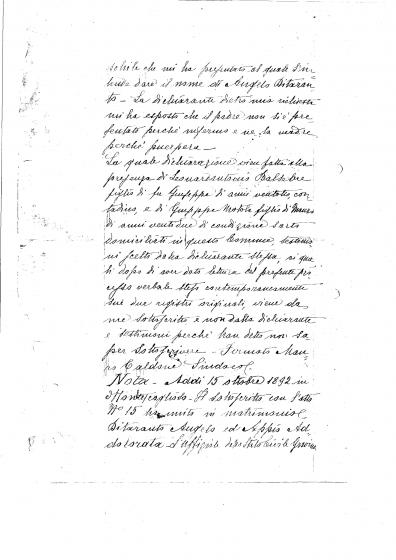 schile che mi ha presentato al quale s'in-
tende dare il nome di Angelo Bitaran-
to - La dichiarante dietro mia richiesta
mi ha esposto che il padre non si è pre-
sentato perché infermo e ne la madre
perché puerpera -
La quale dichiarazione vien fatta alla
presenza di Leonardantonio
figlio di fu Giuseppe di anni ventotto, con-
tadino, e di Giuseppe Motola figlio di
di anni ventidue di condizione sarto
domiciliati in questo Comune, testimo-
ni scelto dalla dichiarante stessa, ai qua-
li dopo di aver dato lettura del presente pro-
cesso verbale steso contemporaneamente
sui due registri originali, viene da
me sottoscritto e non dalla dichiarante
e testimoni perché han detto non sa-
per sottoscrivere - Firmato Mau-
ro Caldone Sindaco.
Nota - Addì 15 ottobre 1892 in
Montescaglioso - Il sottoscritto con l'atto
N° 15 ha unito in matrimonio
Bitaranto Angelo ed Appio Ad-
dolorata - L'uffiziale dello Stato Civile